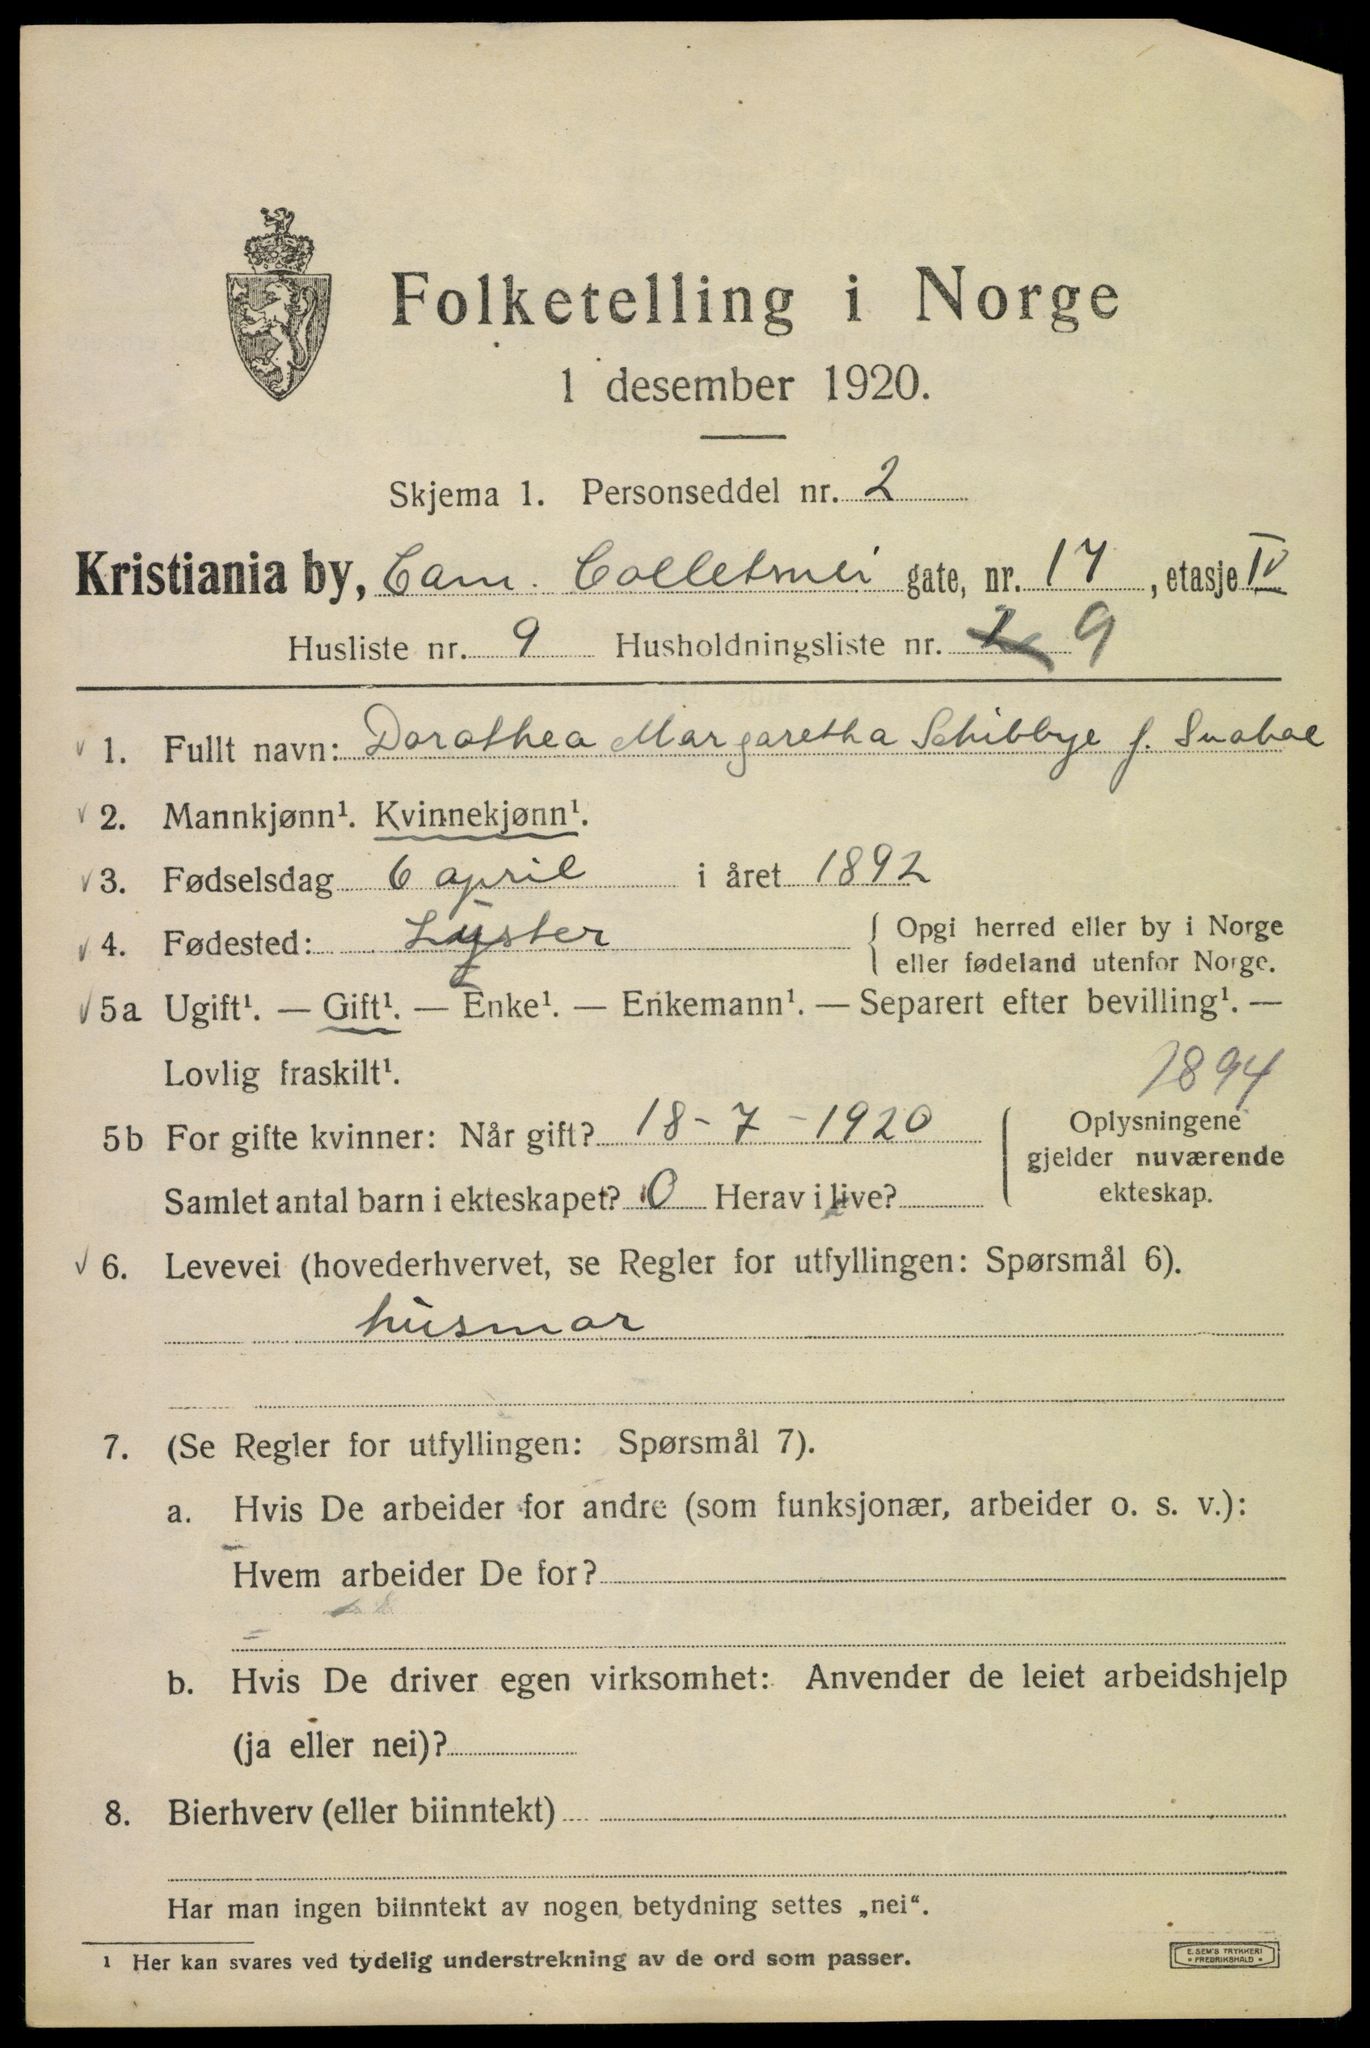 Folketelling i Norge
1 desember 1920.
Skjema 1. Personseddel nr. 2
Kristiania by, Cam. Colletsvei gate, nr. 17, etasje IV
Husliste nr. 9 Husholdningsliste nr. 9
1. Fullt navn: Dorothea Margaretha Schibbye f.
2. Mannkjønn¹. Kvinnekjønn¹.
3. Fødselsdag 6 april i året 1892
4. Fødested: Lyster { Opgi herred eller by i Norge
eller fødeland utenfor Norge.
5a Ugift¹. — Gift¹. — Enke¹. — Enkemann¹. — Separert efter bevilling¹. —
Lovlig fraskilt¹.
1894
5b For gifte kvinner: Når gift? 18-7-1920 { Oplysningene
gjelder nuværende
Samlet antal barn i ekteskapet? 0 Herav i live?
ekteskap.
6. Levevei (hovederhvervet, se Regler for utfyllingen: Spørsmål 6).
husmor
7. (Se Regler for utfyllingen: Spørsmål 7).
a. Hvis De arbeider for andre (som funksjonær, arbeider o. s. v.):
Hvem arbeider De for?
b. Hvis De driver egen virksomhet: Anvender de leiet arbeidshjelp
(ja eller nei)?
8. Bierhverv (eller biinntekt)
Har man ingen biinntekt av nogen betydning settes „nei“.
¹ Her kan svares ved tydelig understrekning av de ord som passer.
E. SEM'S TRYKKERI
FREDRIKSHALD